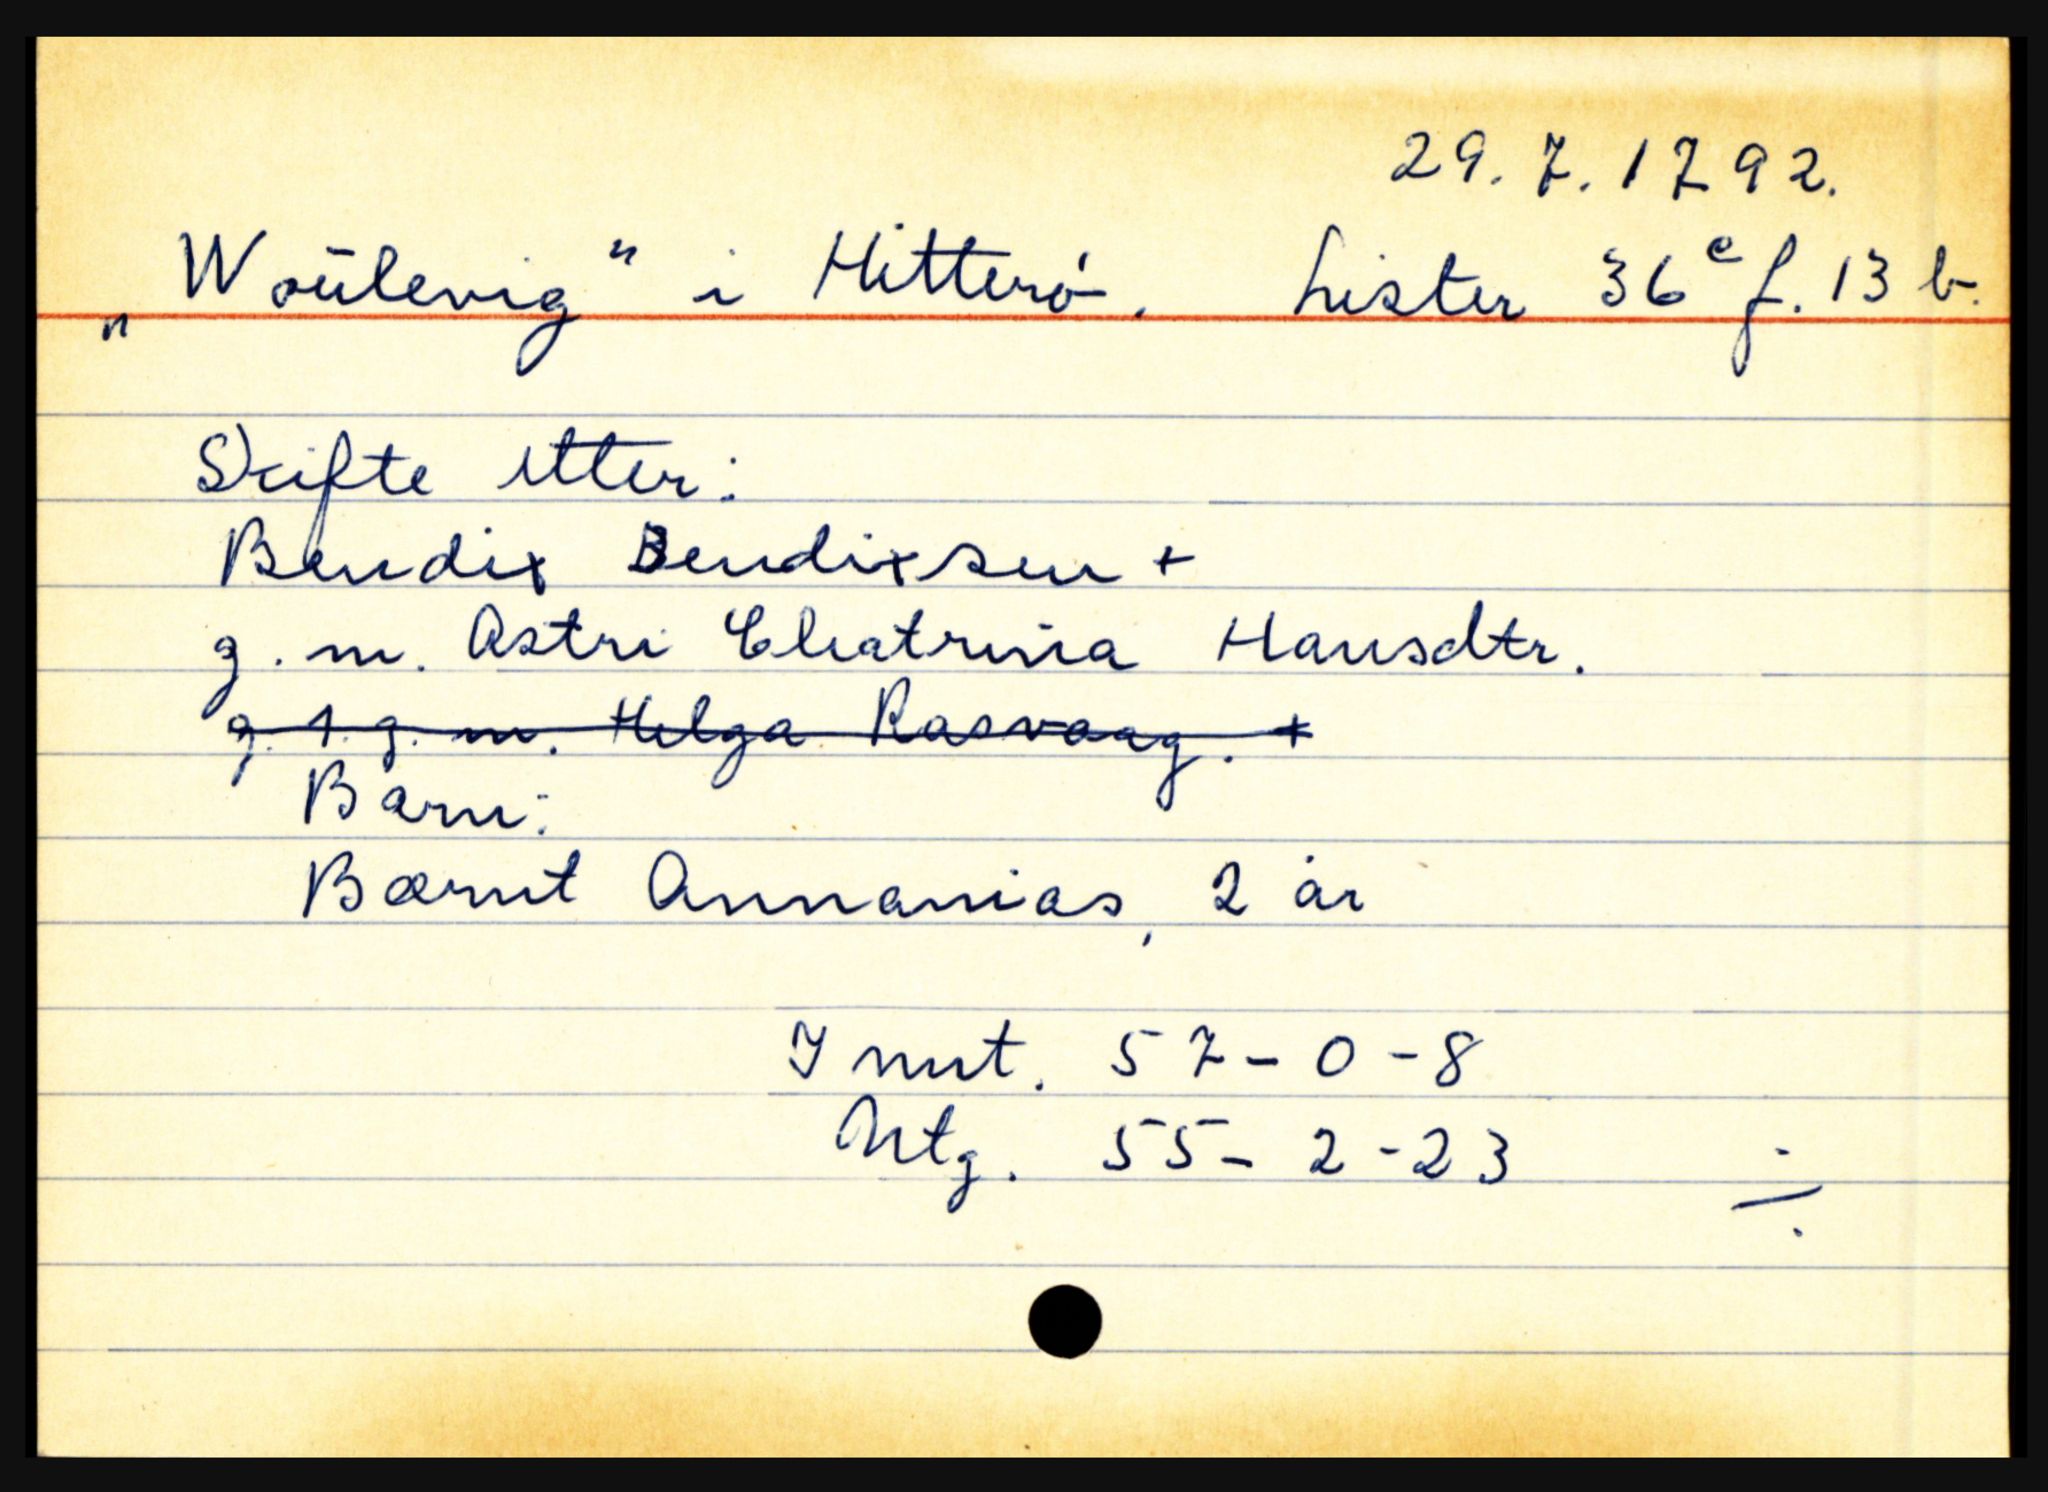 29.7.1792.
„Woülevig" i Hitterö. Lister 36ᵉ f. 13 b.
Skifte etter:
Bendix Bendixsen +
g. m. Astri Chatrina Hansdtr.
g. 1. g. m. Helga Rasvaag. +
Barn:
Bærnt Annanias, 2 år
I nnt. 57-0-8
Utg. 55-2-23 ÷